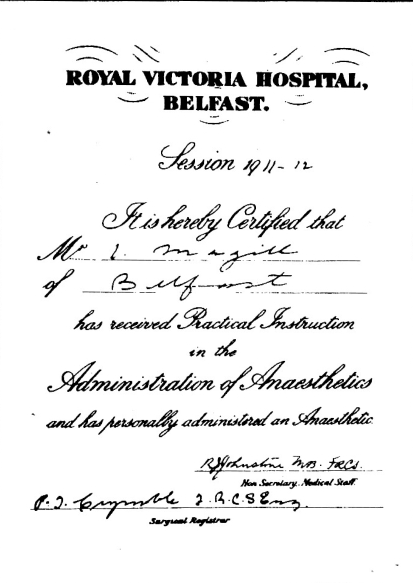 ROYAL VICTORIA HOSPITAL,
BELFAST.
Session 1911-12
It is hereby Certified that
Mr I. Magill
of Belfast
has received Practical Instruction
in the
Administration of Anaesthetics
and has personally administered an Anaesthetic
RJJohnstone M.B. FRCS.
Hon Secretary, Medical Staff.
P. J. Crymble F.R.C.S Eng
Surgical Registrar